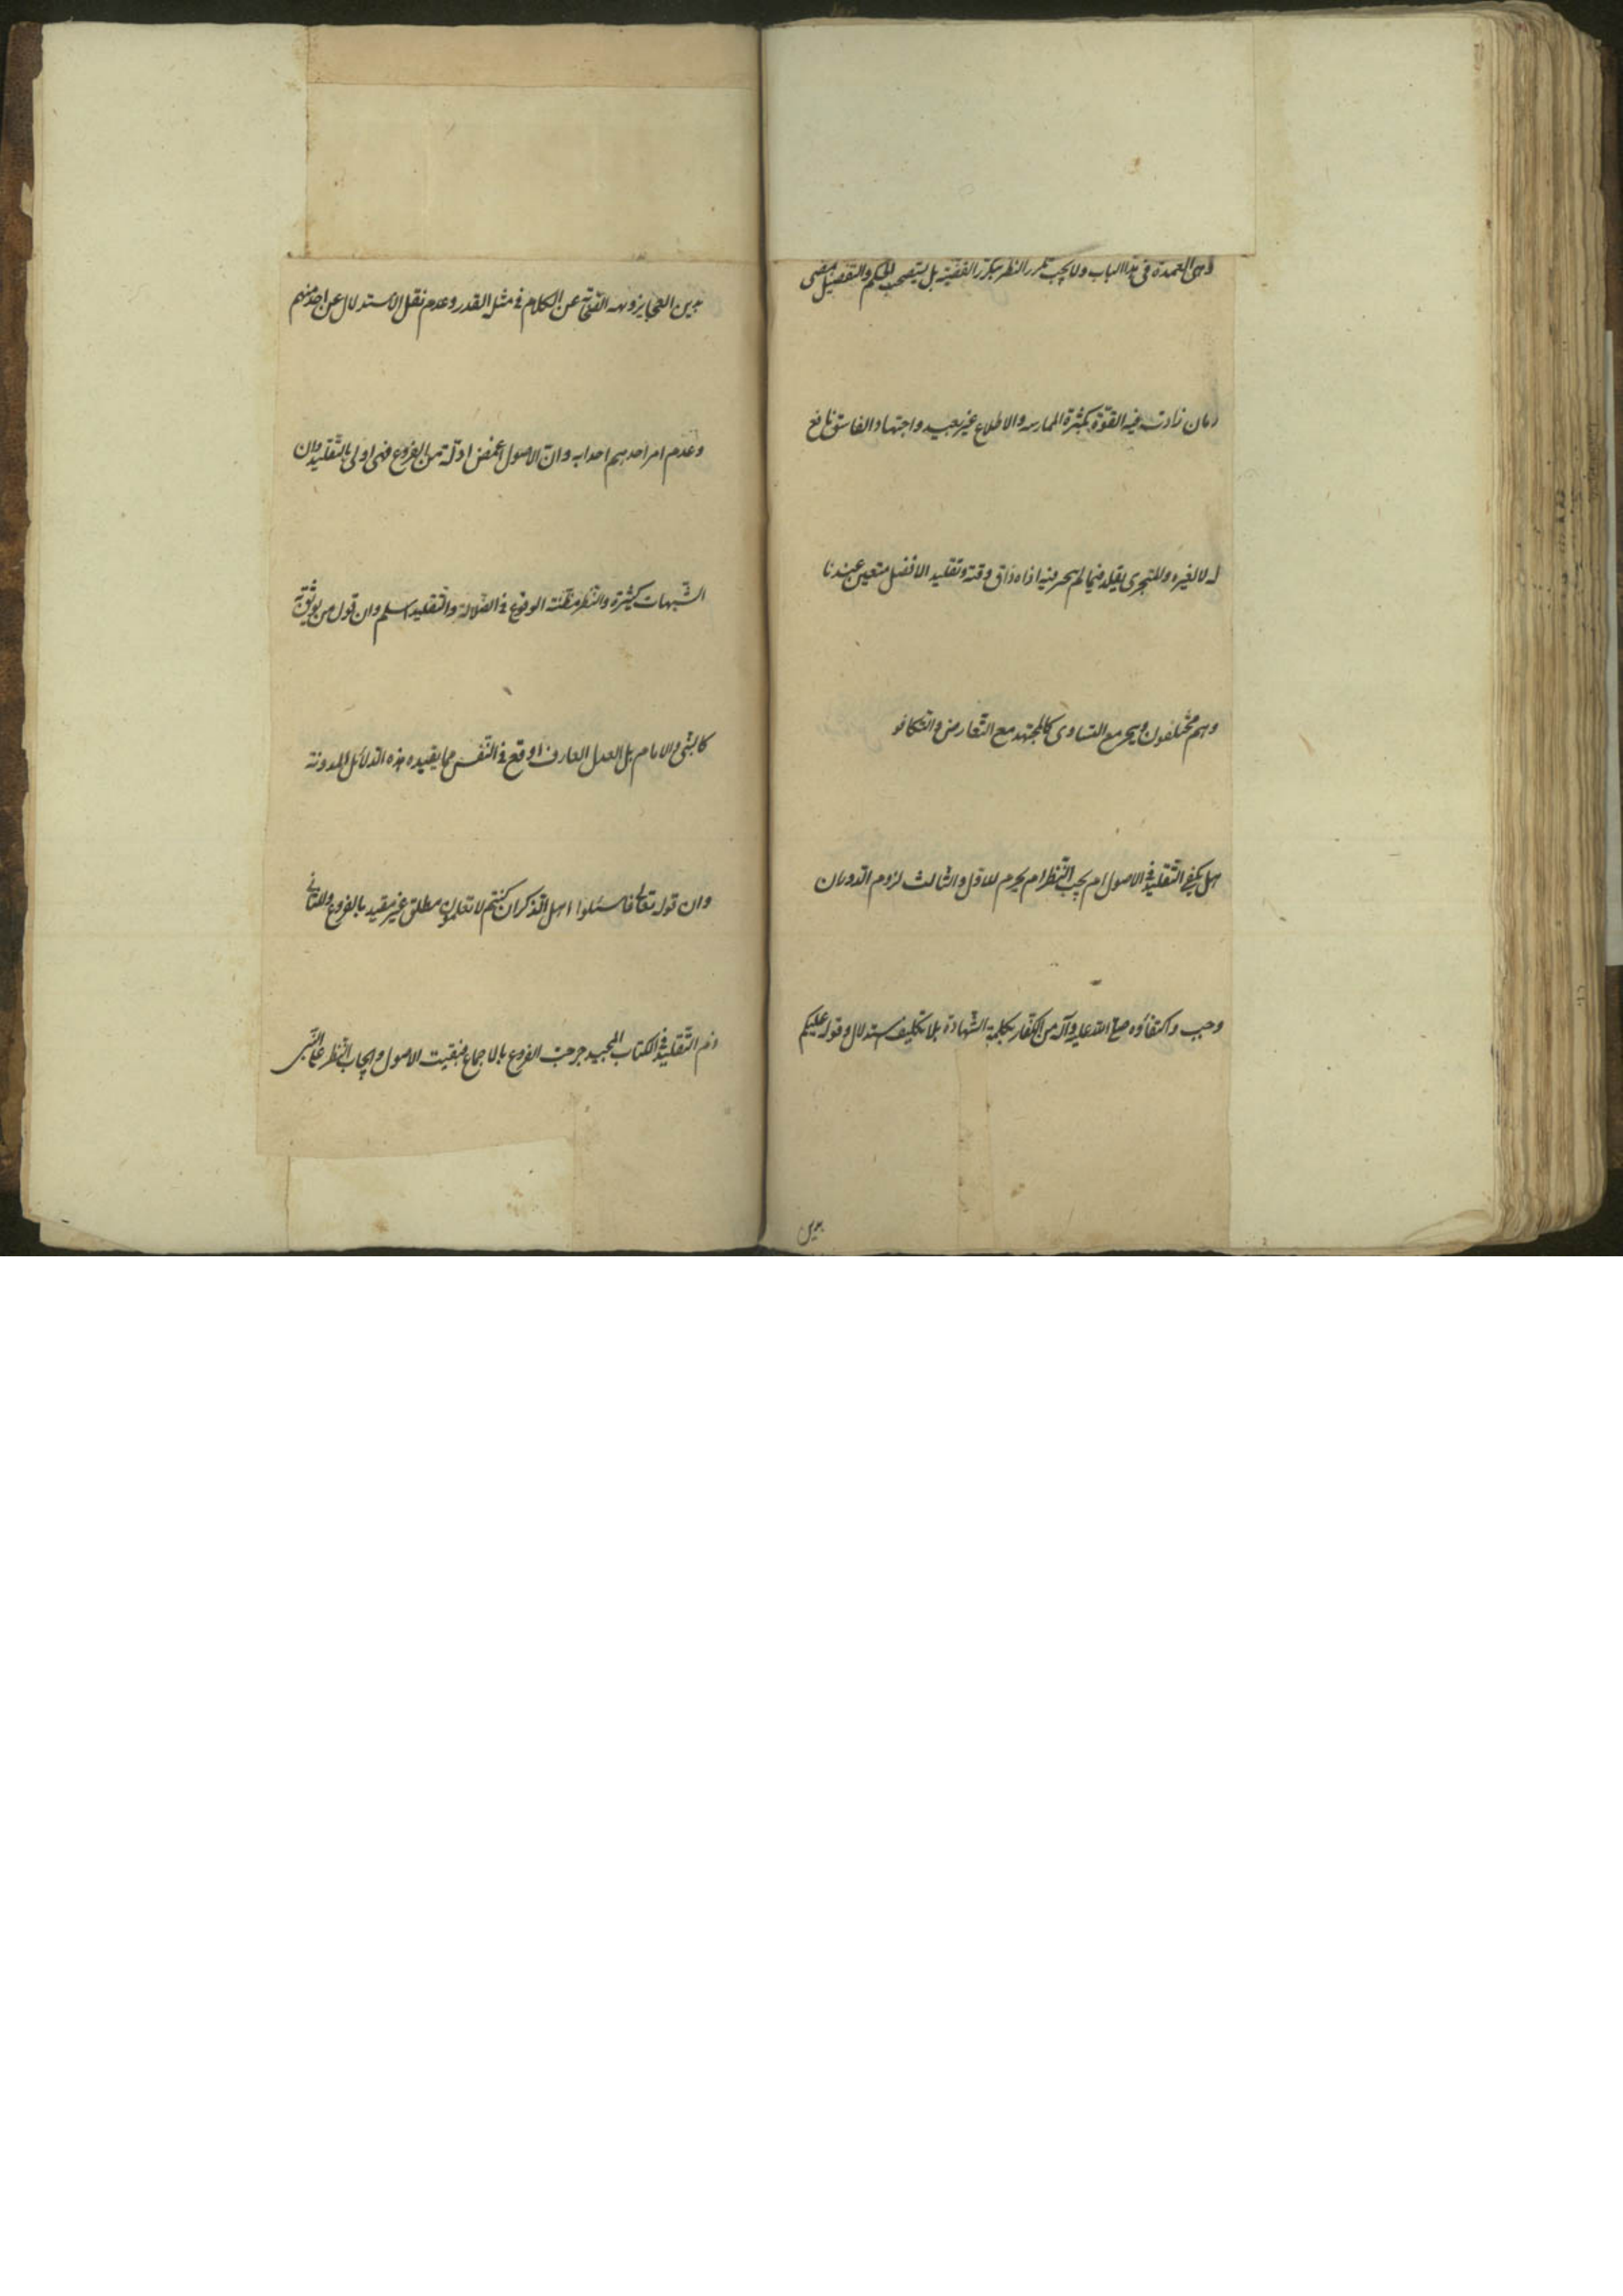 وهى العمدة فى هذا الباب ولا يجب تكرر النظر بتكرر القضية بل يستصحب الحكم والتفصيل بمضى
زمان زادت فيه القوّة بكثرة الممارسه والاطلاع غير بعيد واجتهاد الفاسق نافع
له لا لغيره والمتجزى يقلد فيما لم يجز فيه اذا ضاق وقته وتقليد الافضل متعين عندنا
وهم مختلفون ويخير مع التساوى كالمجتهد مع التّعارض والتّكافو
هل يكفى التّقليد فى الاصول ام يجب النّظر ام يحرم للاوّل والثالث لزوم الدّور ان
وجب واكتفاؤه صلى الله عليه وآله من الكفّار بكلمة الشّهادة بلا تكليف استدلال وقوله عليكم
بدين
بدين العجايز ونهيه الصّحابة عن الكلام فى مثل القدر وعدم نقل الاستدلال عن احد منهم
وعدم امر احدهم احدا به وانّ الاصول اغمض ادلّة من الفروع فهى اولى بالتّقليد وان
الشّبهات كثيرة والنّظر مظنّة الوقوع فى الضّلالة والتّقليد اسلم وان قول من يوثق به
كالنبى والامام بل العدل العارف اوقع فى النّفس مما يفيده هذه الدّلائل المدونة
وان قوله تعالى فاسئلوا اهل الذّكر ان كنتم لا تعلمون مطلق غير مقيد بالفروع وللثانى
ذم التّقليد فى الكتاب المجيد خرجت الفروع بالاجماع فبقيت الاصول وايجاب النّظر على النّبى